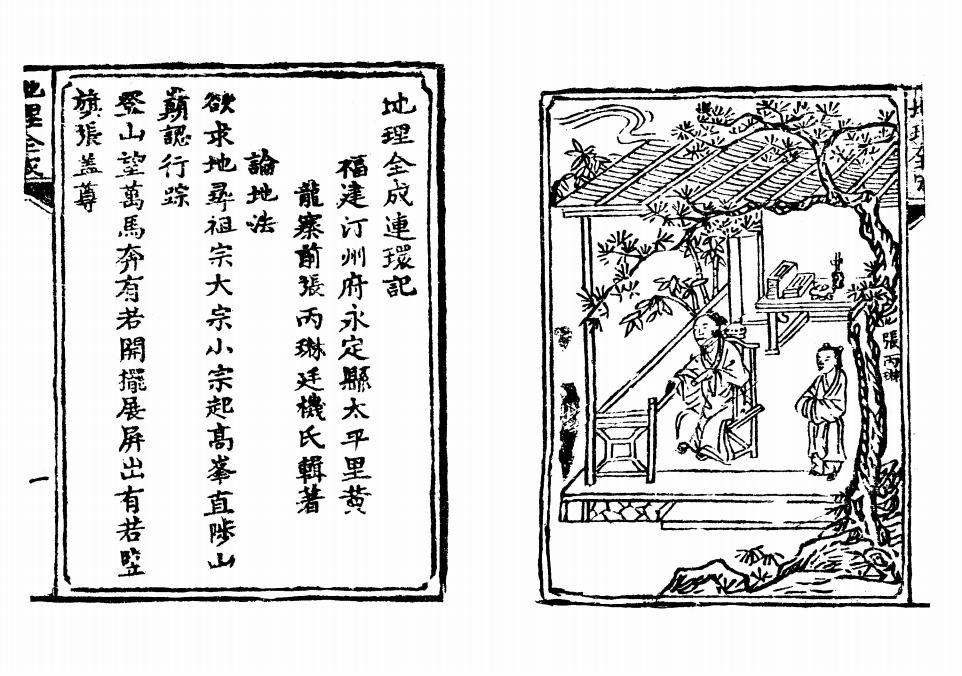 地理全
張丙琳
地理全成連環記
福建汀州府永定縣太平里黃
龍寨前張丙琳廷機氏輯著
論地法
欲求地尋祖宗大宗小宗起髙峯直陟山
巔認行踪
登山望萬馬奔有若開擺展屏出有若竪
旗張盖尊
地理全成
一